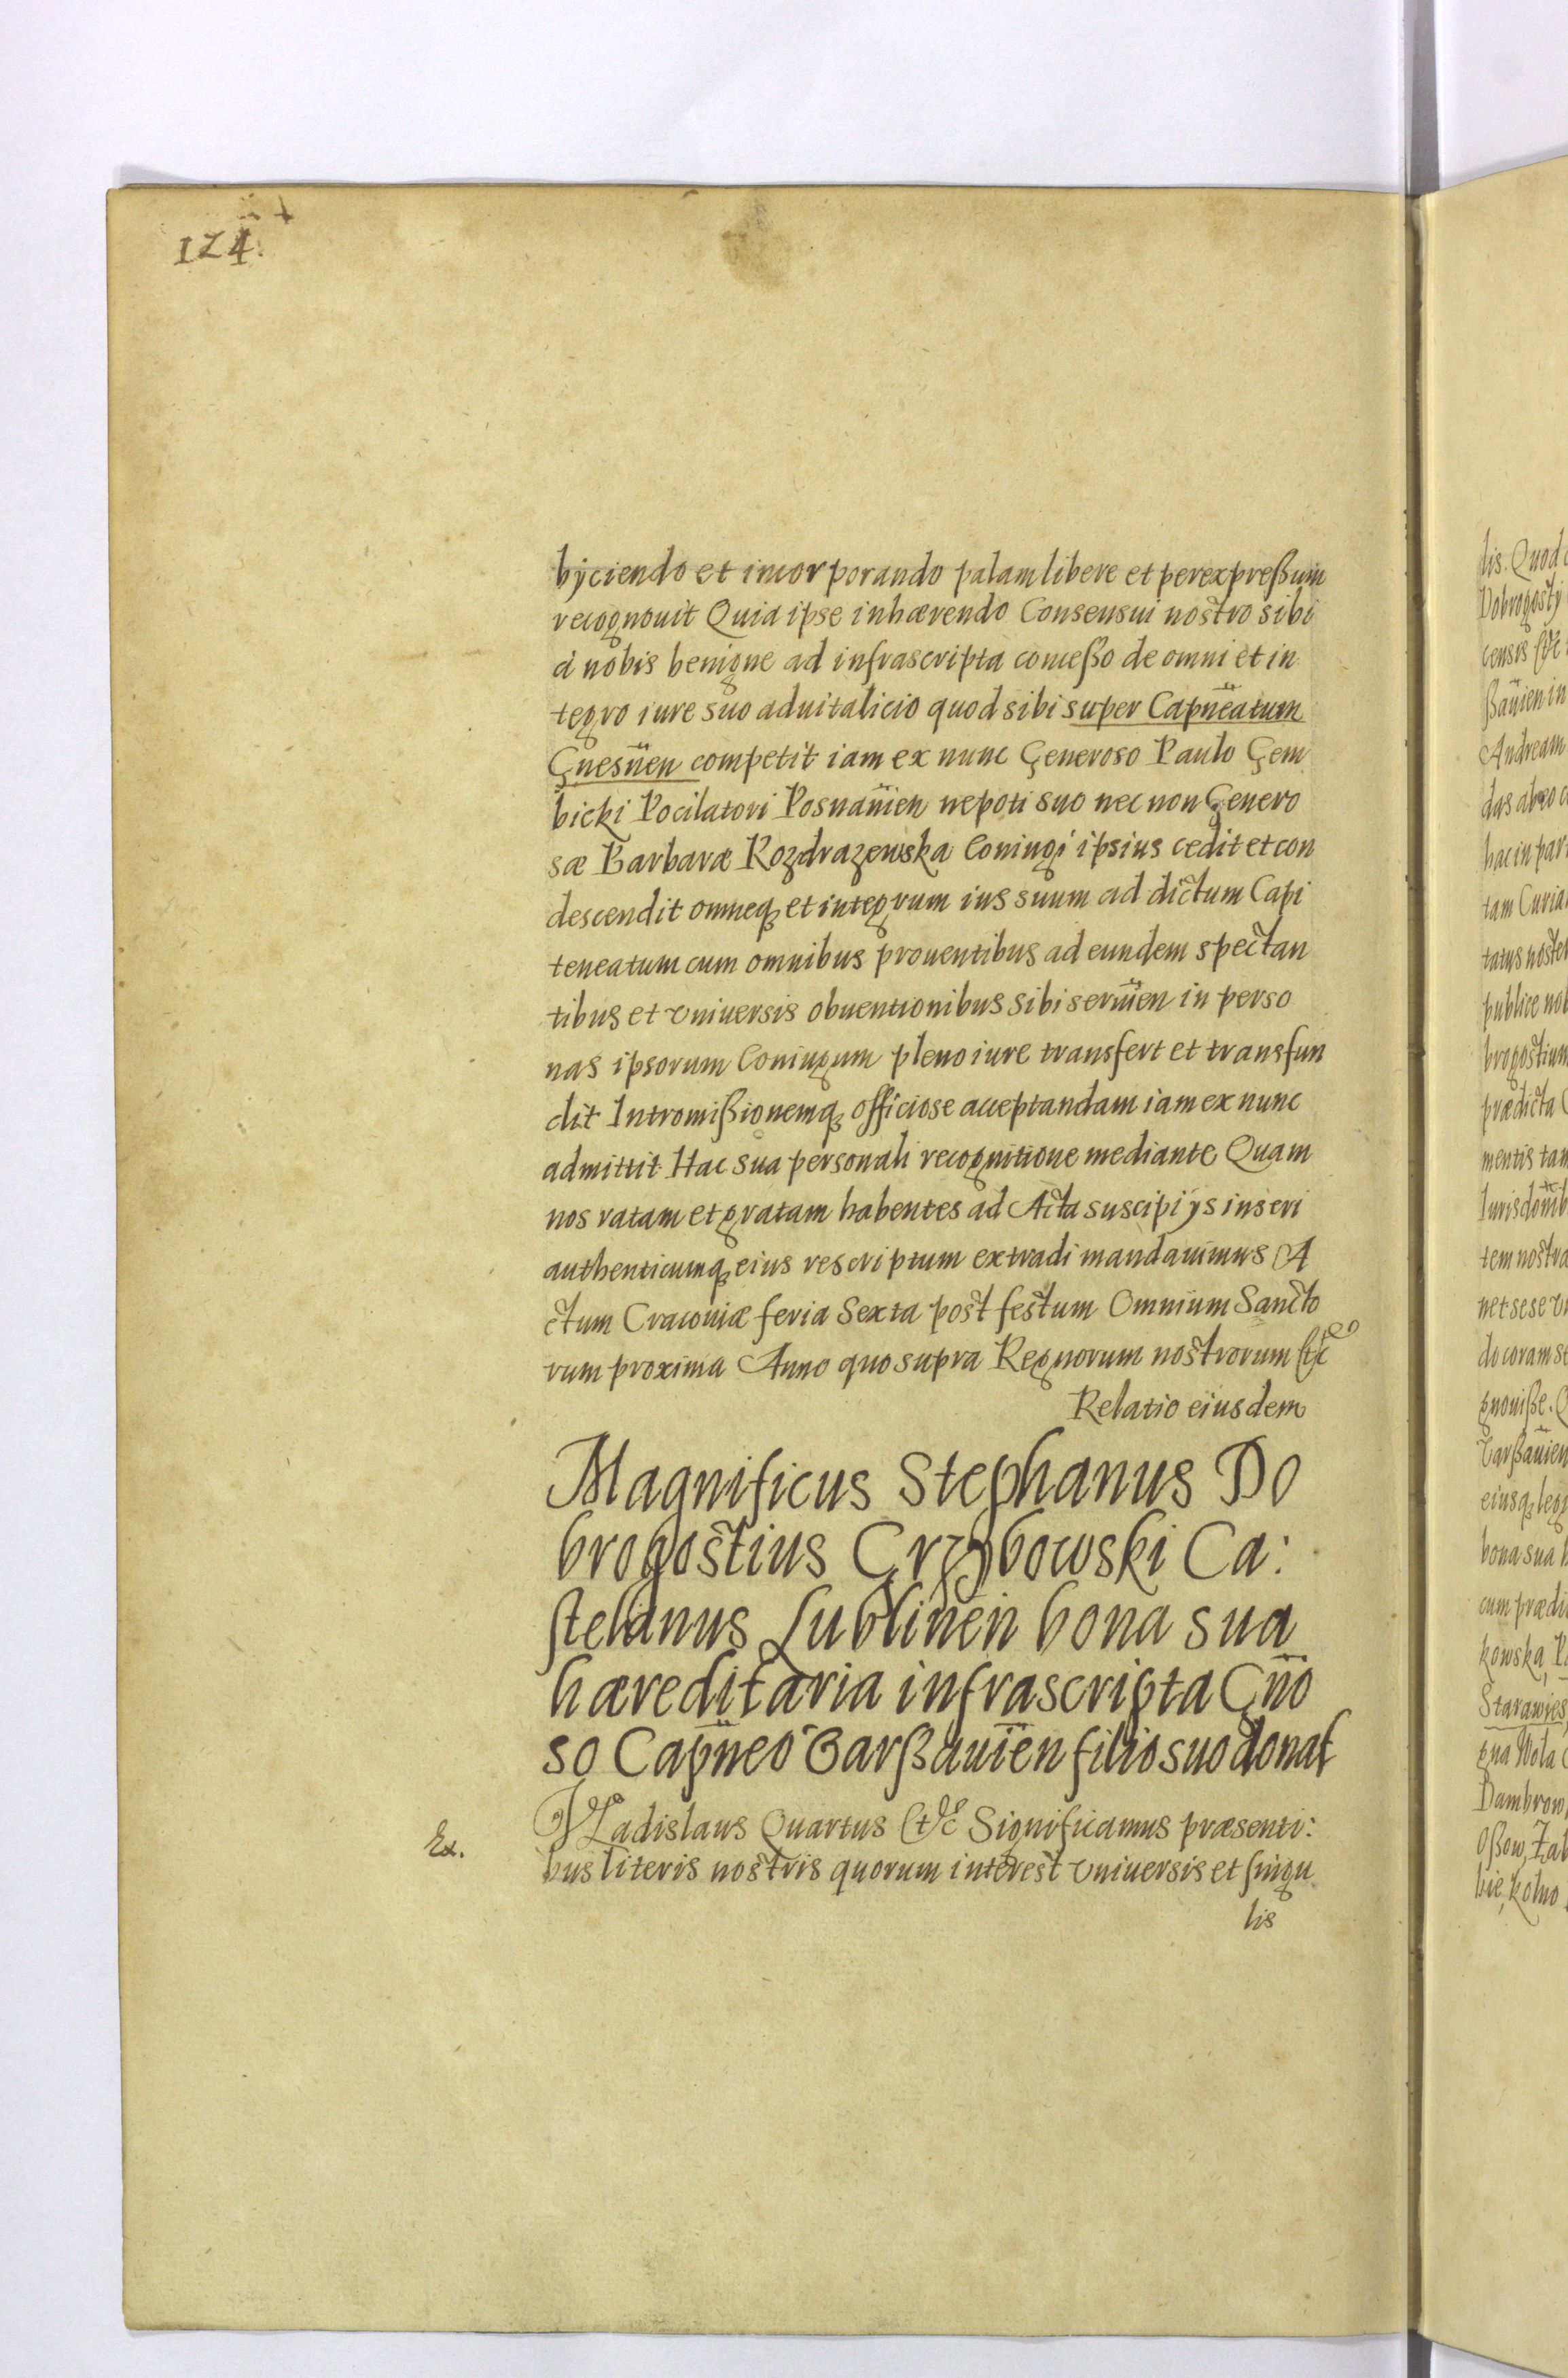 124.
bÿciendo et incorporando palam libere et per expreßum
recognouit Quia ipse inhærendo Consensui nostro sibi
à nobis benigne ad infrascripta conceßo de omni et in
tegro iure suo aduitalicio quod sibi super Capn̄eatum
Gnesn̄en competit iam ex nunc Generoso Paulo Gem
bicki Pocilatori Posnan̄ien nepoti suo nec non Genero
sæ Barbaræ Rozdrazewska Coniugi ipsius cedit et con
descendit omneq; et integrum ius suum ad dictum Capi
teneatum cum omnibus prouentibus ad eundem spectan
tibus et vniuersis obuentionibus sibi seruīen in perso
nas ipsorum Coniugum pleno iure transfert et transfun
dit Intromißionemq; officiose acceptandam iam ex nunc
admittit Hac sua personali recognitione mediante Quam
nos ratam et gratam habentes ad Acta suscipi ÿs inseri
authenticumq; eius rescriptum extradi mandauimus A
ctum Cracouiæ feria Sexta post festum Omnium Sancto
rum proxima Anno quo supra Regnorum nostrorum &c
Relatio eiusdem
Magnificus Stephanus Do
brogostius Grzybowski Ca:
stelanus Lublinēn bona sua
hæreditaria infrascripta Gn̄o
so Capn̄eo Varßauīen filio suo donat
Ex.
Vladislaus Quartus &c Significamus præsenti:
bus literis nostris quorum interest vniuersis et singu
lis